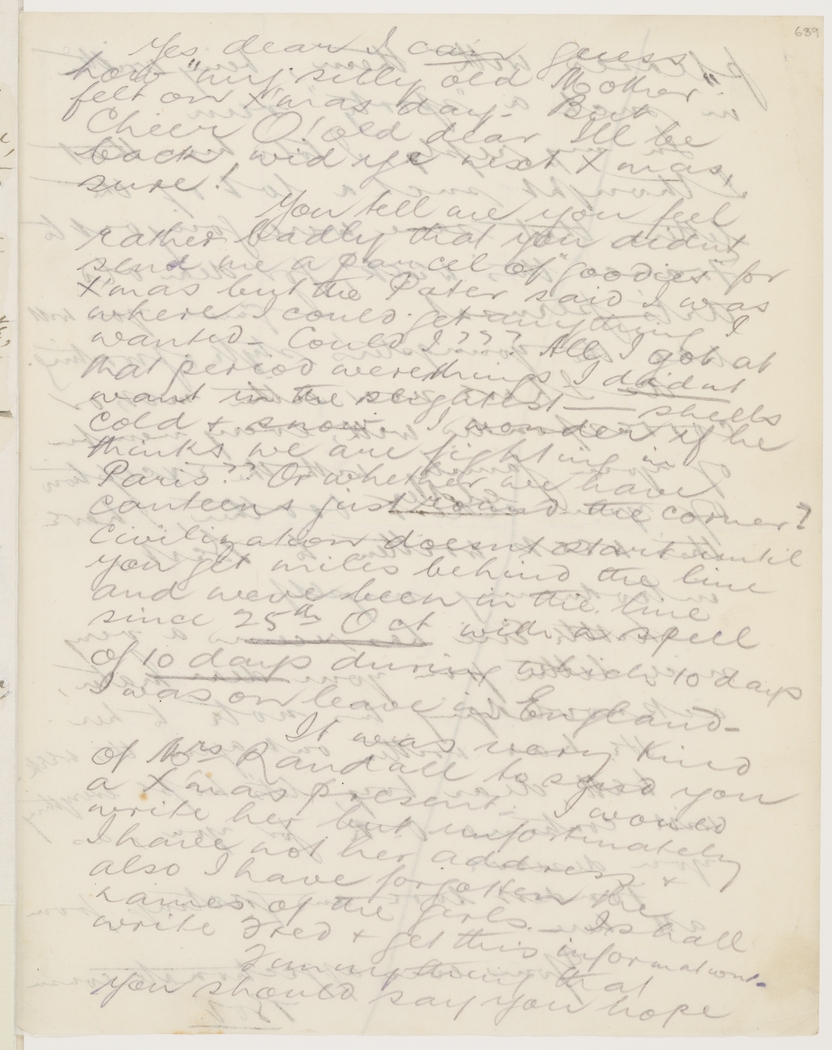 689
Yes dear I can guess
how "my silly old Mother"
felt on X'mas day- But
Cheer O! old dear I'll be
back wid ye next X'mas,
sure!
You tell me you feel
rather badly that you didn't
send me a parcel of "goodies" for
X'mas but the Pater said I was
where I could get anything I
wanted- Could I??? All I got at
that period were things I didn't
want in the slightest — shells
cold & snow. I wonder if he
thinks we are fighting in
Paris?? Or whether we have
canteens just round the corner?
Civilization doesn't start until
you get miles behind the line
and we've been in the line
since 25th Oct with a spell
of 10 days during which 10 days
I was on leave in England-
It was very kind
of Mrs Randall to send you
a X'mas present. I would
write her but unfortunately
I have not her address &
also I have forgotten the
names of the girls- I shall
write Fred & get this information.
Funny thing that
you should say you hope